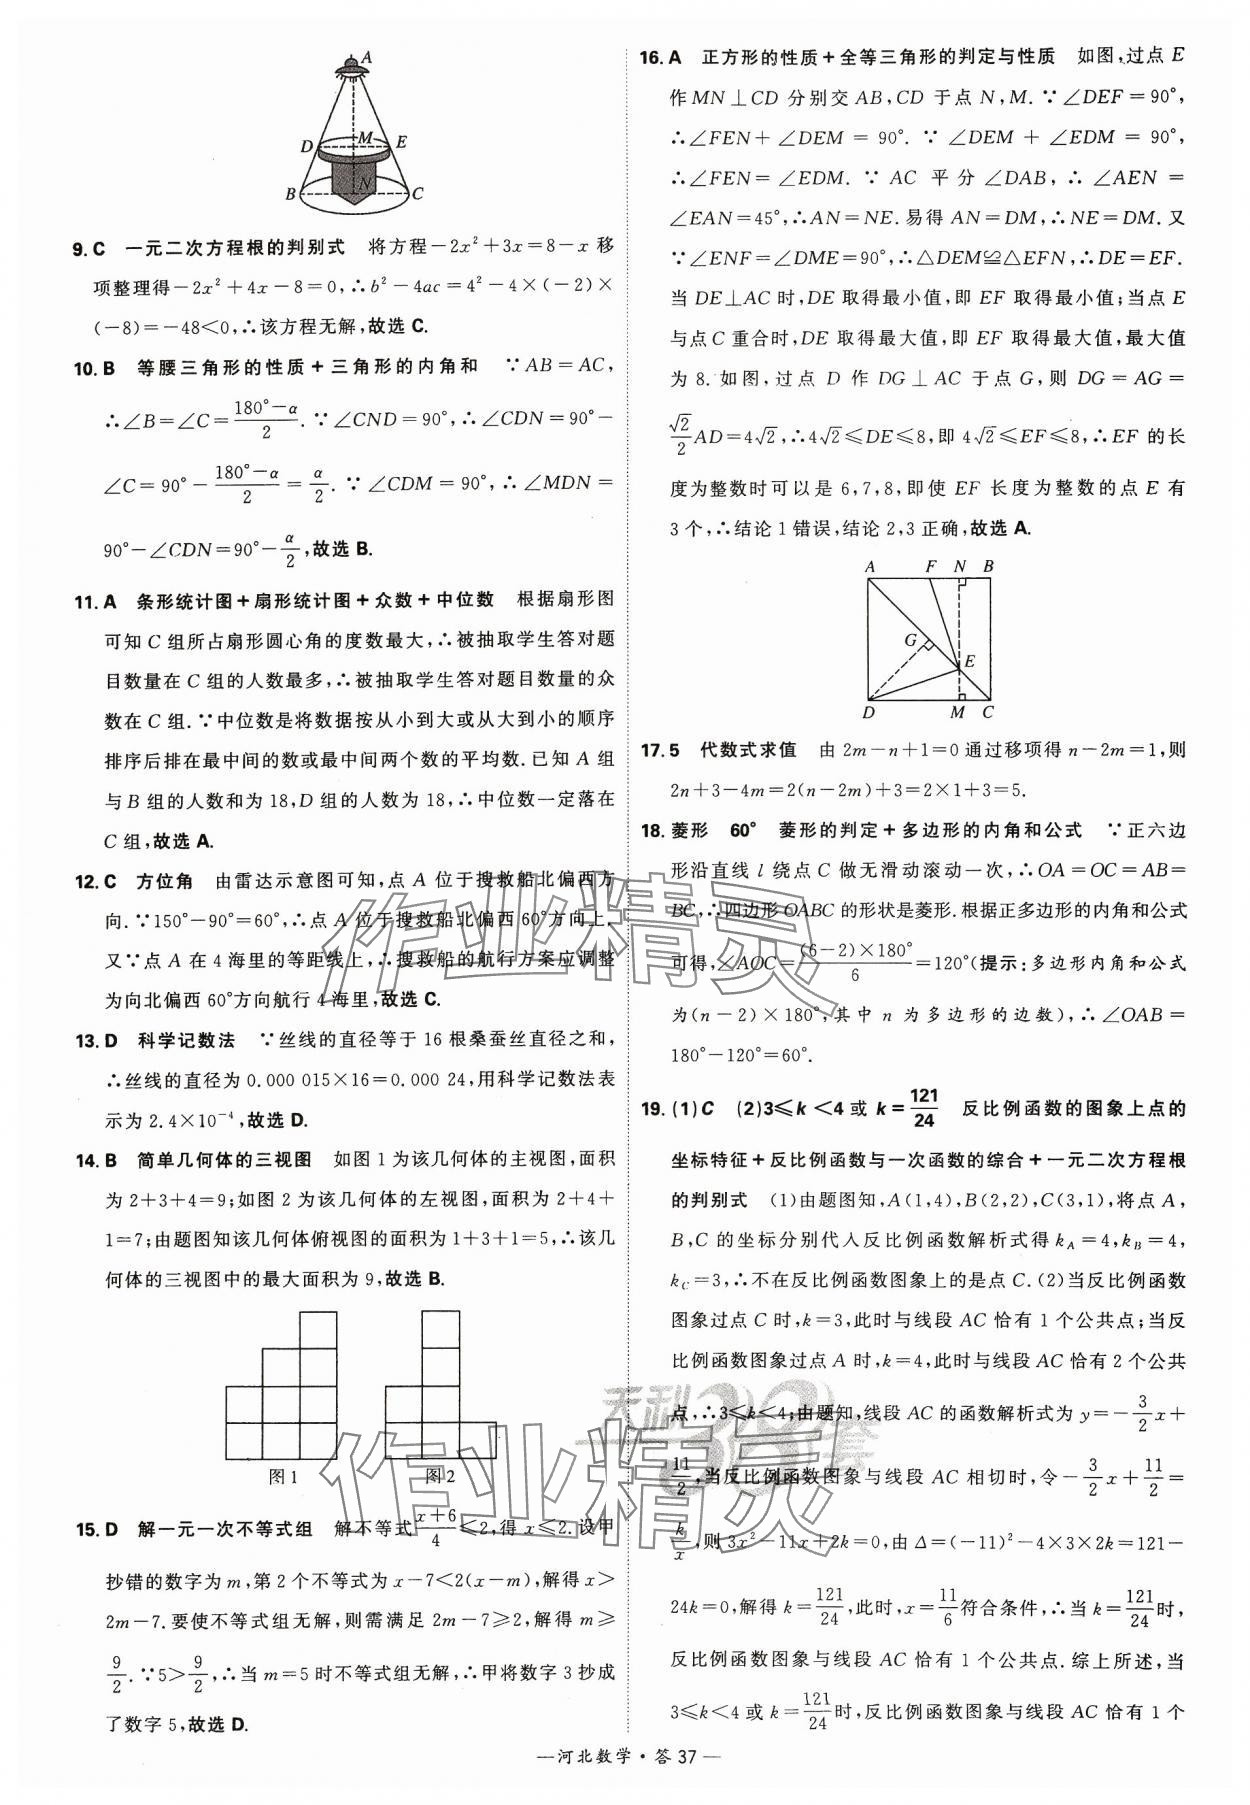 A
M
D
E
N
B
C
9. C 一元二次方程根的判别式 将方程−2x²+3x=8−x 移
项整理得−2x²+4x−8=0,∴b²−4ac=4²−4×(−2)×
(−8)=−48<0,∴该方程无解,故选 C.
10. B 等腰三角形的性质+三角形的内角和 ∵AB=AC,
∴∠B=∠C=(180°−α)/2. ∵∠CND=90°,∴∠CDN=90°−
∠C=90°−(180°−α)/2=α/2. ∵∠CDM=90°,∴∠MDN=
90°−∠CDN=90°−α/2,故选 B.
11. A 条形统计图+扇形统计图+众数+中位数 根据扇形图
可知 C 组所占扇形圆心角的度数最大,∴被抽取学生答对题
目数量在 C 组的人数最多,∴被抽取学生答对题目数量的众
数在 C 组.∵中位数是将数据按从小到大或从大到小的顺序
排序后排在最中间的数或最中间两个数的平均数.已知 A 组
与 B 组的人数和为 18,D 组的人数为 18,∴中位数一定落在
C 组,故选 A.
12. C 方位角 由雷达示意图可知,点 A 位于搜救船北偏西方
向.∵150°−90°=60°,∴点 A 位于搜救船北偏西 60°方向上,
又∵点 A 在 4 海里的等距线上,∴搜救船的航行方案应调整
为向北偏西 60°方向航行 4 海里,故选 C.
13. D 科学记数法 ∵丝线的直径等于 16 根桑蚕丝直径之和,
∴丝线的直径为 0.000 015×16=0.000 24,用科学记数法表
示为 2.4×10⁻⁴,故选 D.
14. B 简单几何体的三视图 如图 1 为该几何体的主视图,面积
为 2+3+4=9;如图 2 为该几何体的左视图,面积为 2+4+
1=7;由题图知该几何体俯视图的面积为 1+3+1=5,∴该几
何体的三视图中的最大面积为 9,故选 B.
图 1
图 2
15. D 解一元一次不等式组 解不等式(x+6)/4≤2,得 x≤2.设甲
抄错的数字为 m,第 2 个不等式为 x−7<2(x−m),解得 x>
2m−7.要使不等式组无解,则需满足 2m−7≥2,解得 m≥
9/2.∵5>9/2,∴当 m=5 时不等式组无解,∴甲将数字 3 抄成
了数字 5,故选 D.
16. A 正方形的性质+全等三角形的判定与性质 如图,过点 E
作 MN⊥CD 分别交 AB,CD 于点 N,M.∵∠DEF=90°,
∴∠FEN+∠DEM=90°.∵∠DEM+∠EDM=90°,
∴∠FEN=∠EDM.∵AC 平分∠DAB,∴∠AEN=
∠EAN=45°,∴AN=NE.易得 AN=DM,∴NE=DM.又
∵∠ENF=∠DME=90°,∴△DEM≌△EFN,∴DE=EF.
当 DE⊥AC 时,DE 取得最小值,即 EF 取得最小值;当点 E
与点 C 重合时,DE 取得最大值,即 EF 取得最大值,最大值
为 8.如图,过点 D 作 DG⊥AC 于点 G,则 DG=AG=
√2/2AD=4√2,∴4√2≤DE≤8,即 4√2≤EF≤8,∴EF 的长
度为整数时可以是 6,7,8,即使 EF 长度为整数的点 E 有
3 个,∴结论 1 错误,结论 2,3 正确,故选 A.
A F N B
G
E
D M C
17. 5 代数式求值 由 2m−n+1=0 通过移项得 n−2m=1,则
2n+3−4m=2(n−2m)+3=2×1+3=5.
18. 菱形 60° 菱形的判定+多边形的内角和公式 ∵正六边
形沿直线 l 绕点 C 做无滑动滚动一次,∴OA=OC=AB=
BC,∴四边形 OABC 的形状是菱形.根据正多边形的内角和公式
可得,∠AOC=((6−2)×180°)/6=120°(提示:多边形内角和公式
为(n−2)×180°,其中 n 为多边形的边数),∴∠OAB=
180°−120°=60°.
19. (1)C (2)3≤k<4 或 k=121/24 反比例函数的图象上点的
坐标特征+反比例函数与一次函数的综合+一元二次方程根
的判别式 (1)由题图知,A(1,4),B(2,2),C(3,1),将点 A,
B,C 的坐标分别代入反比例函数解析式得 k_A=4,k_B=4,
k_C=3,∴不在反比例函数图象上的是点 C.(2)当反比例函数
图象过点 C 时,k=3,此时与线段 AC 恰有 1 个公共点;当反
比例函数图象过点 A 时,k=4,此时与线段 AC 恰有 2 个公共
点,∴3≤k<4;由题知,线段 AC 的函数解析式为 y=−3/2x+
11/2,当反比例函数图象与线段 AC 相切时,令−3/2x+11/2=
k/x,则 3x²−11x+2k=0,由 Δ=(−11)²−4×3×2k=121−
24k=0,解得 k=121/24,此时,x=11/6符合条件,∴当 k=121/24时,
反比例函数图象与线段 AC 恰有 1 个公共点.综上所述,当
3≤k<4 或 k=121/24时,反比例函数图象与线段 AC 恰有 1 个
—河北数学·答 37—
作业精灵
作业精灵
天利38套